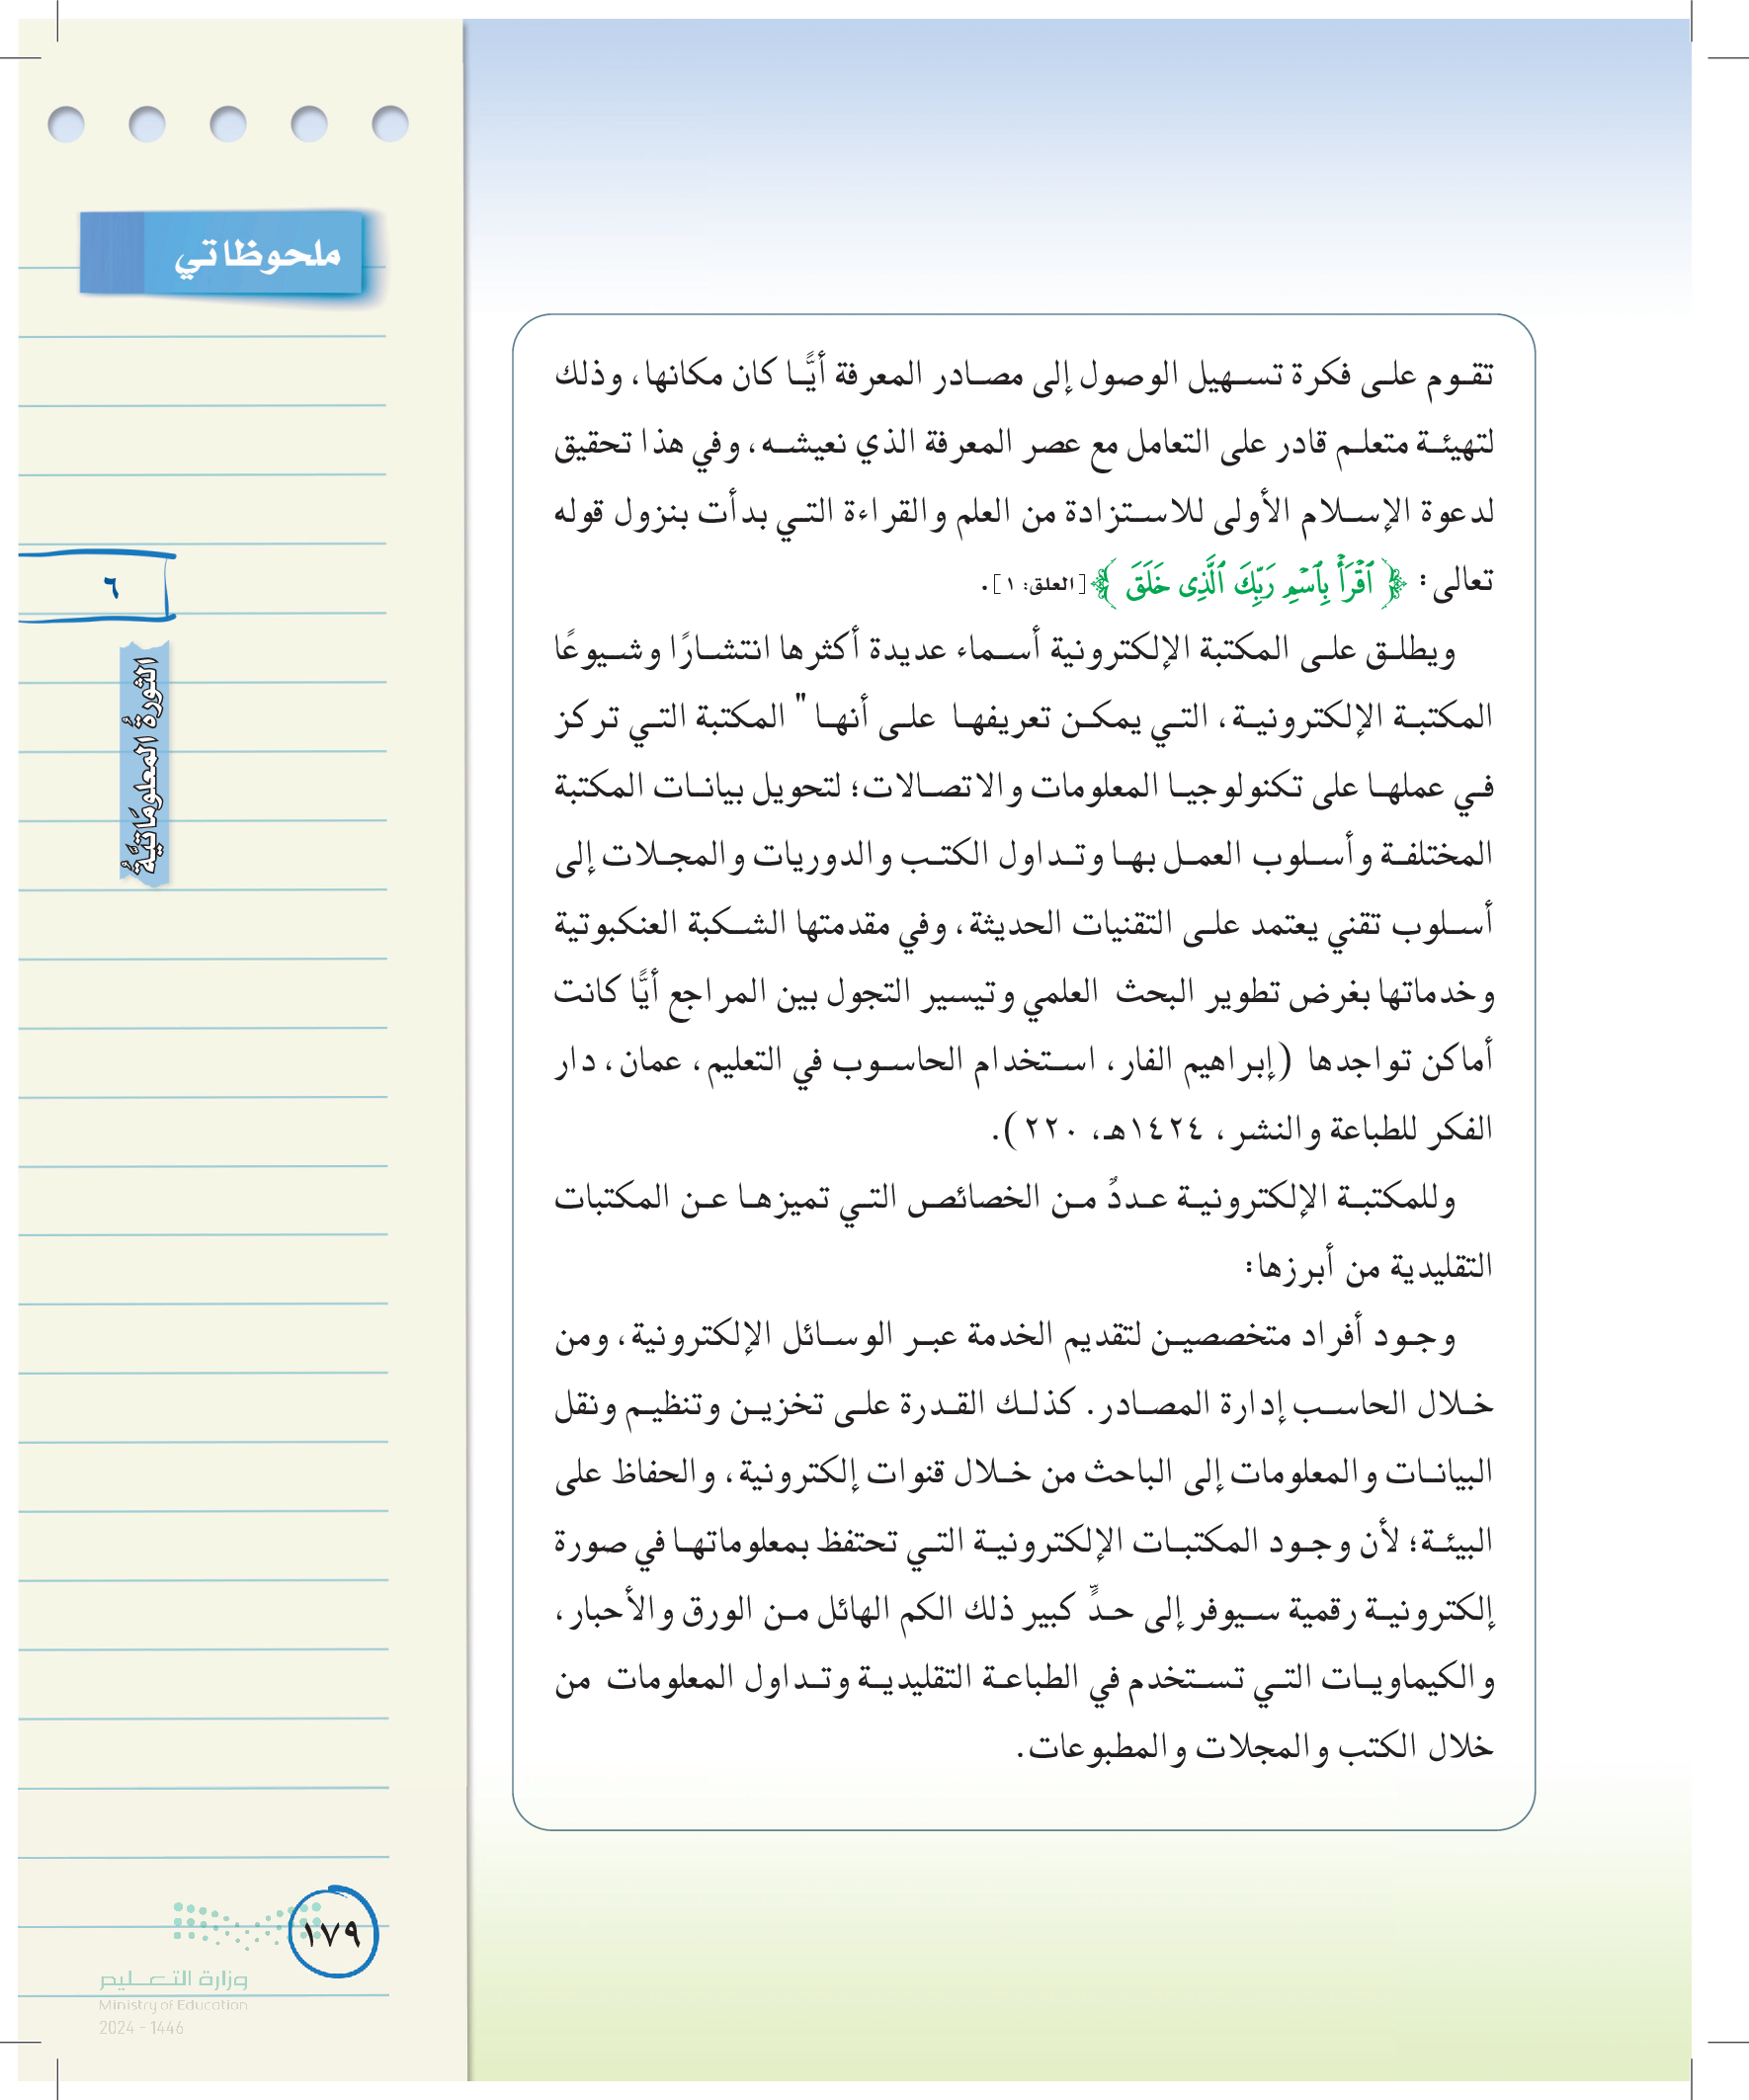 ملحوظاتي
تقوم على فكرة تسهيل الوصول إلى مصادر المعرفة أيًّا كان مكانها، وذلك
لتهيئة متعلم قادر على التعامل مع عصر المعرفة الذي نعيشه، وفي هذا تحقيق
لدعوة الإسلام الأولى للاستزادة من العلم والقراءة التي بدأت بنزول قوله
تعالى: ﴿ ٱقۡرَأۡ بِٱسۡمِ رَبِّكَ ٱلَّذِى خَلَقَ ﴾ [العلق: ١].
ويطلق على المكتبة الإلكترونية أسماء عديدة أكثرها انتشارًا وشيوعًا
المكتبة الإلكترونية، التي يمكن تعريفها على أنها " المكتبة التي تركز
في عملها على تكنولوجيا المعلومات والاتصالات؛ لتحويل بيانات المكتبة
المختلفة وأسلوب العمل بها وتداول الكتب والدوريات والمجلات إلى
أسلوب تقني يعتمد على التقنيات الحديثة، وفي مقدمتها الشكبة العنكبوتية
وخدماتها بغرض تطوير البحث العلمي وتيسير التجول بين المراجع أيًّا كانت
أماكن تواجدها (إبراهيم الفار، استخدام الحاسوب في التعليم، عمان، دار
الفكر للطباعة والنشر، ١٤٢٤هـ، ٢٢٠).
وللمكتبة الإلكترونية عددٌ من الخصائص التي تميزها عن المكتبات
التقليدية من أبرزها:
وجود أفراد متخصصين لتقديم الخدمة عبر الوسائل الإلكترونية، ومن
خلال الحاسب إدارة المصادر. كذلك القدرة على تخزين وتنظيم ونقل
البيانات والمعلومات إلى الباحث من خلال قنوات إلكترونية، والحفاظ على
البيئة؛ لأن وجود المكتبات الإلكترونية التي تحتفظ بمعلوماتها في صورة
إلكترونية رقمية سيوفر إلى حدٍّ كبير ذلك الكم الهائل من الورق والأحبار،
والكيماويات التي تستخدم في الطباعة التقليدية وتداول المعلومات من
خلال الكتب والمجلات والمطبوعات.
٦
الثورةُ المعلومَاتيَّةُ
١٧٩
وزارة التعليم
Ministry of Education
2024 - 1446